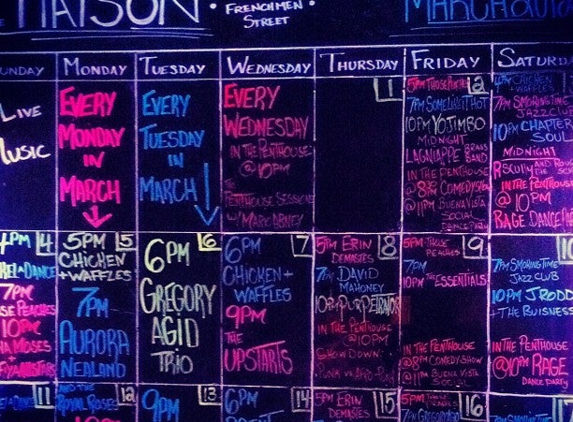 MAISON
• FRENCHMEN •
STREET
MARCH
SUNDAY
MONDAY
TUESDAY
WEDNESDAY
THURSDAY
FRIDAY
SATURDAY
LIVE
MUSIC
EVERY
MONDAY
IN
MARCH
EVERY
TUESDAY
IN
MARCH
EVERY
WEDNESDAY
IN THE PENTHOUSE
@ 10PM
THE
PENTHOUSE SESSIONS
W/ MARK
1
2
5PM
7PM SOME LIKE IT HOT
10PM YOJIMBO
MIDNIGHT
LAGNIAPPE BRASS
BAND
IN THE PENTHOUSE
@ 8 COMEDY SHOW
@ 11PM BUENA VISTA
SOCIAL
DANCE PARTY
CHICKEN
+ WAFFLES
7PM SMOKING TIME
JAZZ CLUB
10PM CHAPTER
SOUL
MIDNIGHT
IN THE PENTHOUSE
@ 10PM
RAGE DANCE PA
4PM 4
7PM
PEACHES
10PM
HA MOSES
5PM 5
CHICKEN
+ WAFFLES
7PM
AURORA
NEALAND
6PM 6
GREGORY
AGID
TRIO
6PM 7
CHICKEN +
WAFFLES
9PM
THE
UPSTARTS
5PM ERIN 8
DEMASTES
7PM DAVID
MAHONEY
10PM
IN THE PENTHOUSE
@ 10PM
SHOWDOWN
5PM THOSE 9
PEACHES
7PM
10PM THE ESSENTIALS
IN THE PENTHOUSE
@ 8PM COMEDY SHOW
@ 11PM BUENA VISTA
SOCIAL
10
7PM SMOKING TIME
JAZZ CLUB
10PM J RODD
+ THE BUISNESS
IN THE PENTHOUSE
@ 10PM RAGE
DANCE PARTY
11
AND THE 12
ROYAL ROSES
13
9PM
6PM 14
5PM ERIN 15
DEMASTES
5PM 16
PEACHES
7PM GREGORY AGID
17